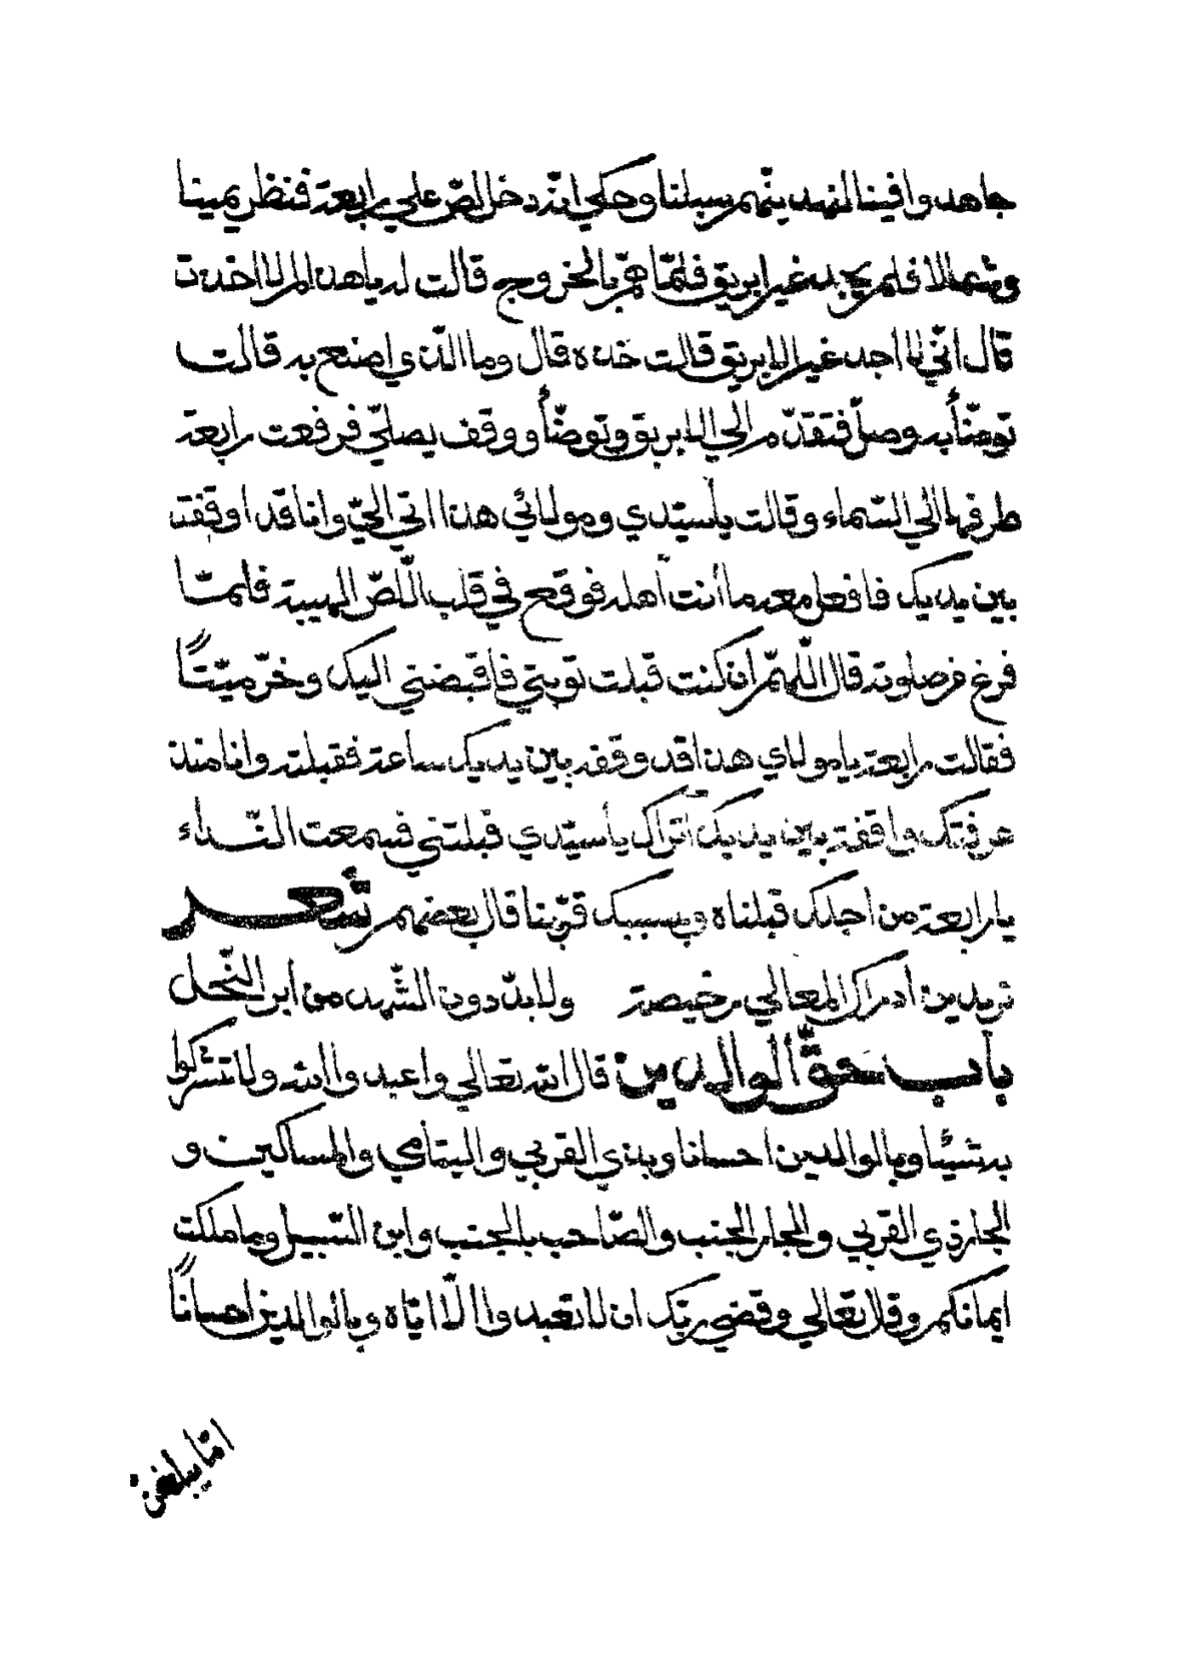 جاهدوا فينا لنهدينهم سبلنا وحكي انه دخل لص علي رابعة فنظر يمينا
وشمالا فلم يجد غير ابريق فلمّا همّ بالخروج قالت له يا هذا لم لا اخذت
قال انّي لا اجد غير الابريق قالت خذه قال وما الذي اصنع به قالت
توضّأ به وصلّ فتقدّم الي الابريق وتوضّأ ووقف يصلّي فرفعت رابعة
طرفها الي السّماء وقالت يا سيّدي ومولائي هذا اتي اليّ وانا قد اوقفته
بين يديك فافعل معه ما أنت أهله فوقع في قلب اللّص الهيبة فلمّا
فرغ من صلوته قال اللّهمّ ان كنت قبلت توبتي فاقبضني اليك وخرّ ميّتاً
فقالت رابعة يا مولاي هذا قد وقف بين يديك ساعة فقبلته وانا منذ
عرفتك واقفة بين يديك أتراك يا سيّدي قبلتني فسمعت النّداء
يا رابعة من اجلك قبلناه وبسببك قرّبنا قال بعضهم شعر
تريدين أدراك المعالي رخيصة ولا بدّ دون الشّهد من ابر النّحل
باب حقّ الوالدين قال الله تعالي واعبدوا الله ولا تشركوا
به شيئا وبالوالدين احسانا وبذي القربي واليتامي والمساكين و
الجار ذي القربي والجار الجنب والصّاحب بالجنب وابن السّبيل وما ملكت
ايمانكم وقال تعالي وقضي ربّك ان لا تعبدوا الّا ايّاه وبالوالدين احساناً
امّا يبلغنّ